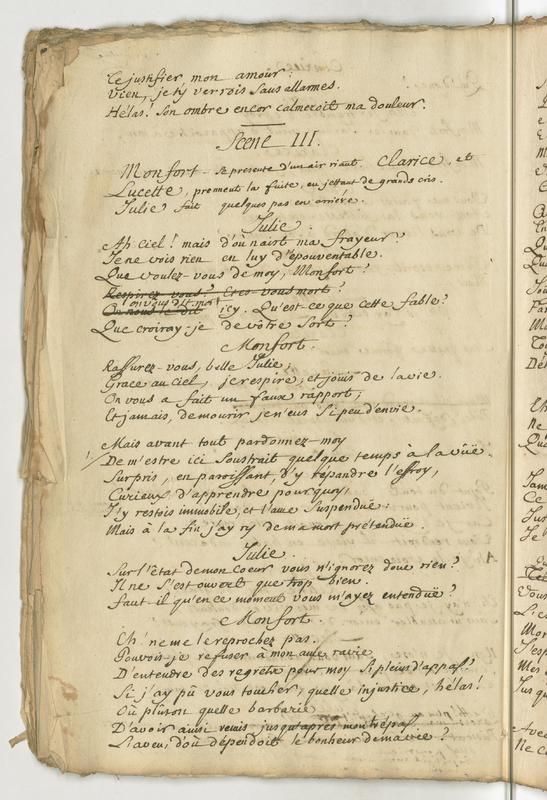 Te justifier mon amour.
Vien, je t'y verrois sans allarmes.
Hélas! Son ombre encor calmeroit ma douleur.
Scene III.
Monfort se presente d'un air riant. Clarice, et
Lucette, prennent la fuite, en jettant de grands cris.
Julie fait quelques pas en arriére.
Julie.
Ah Ciel! mais d'où naist ma frayeur?
Je ne vois rien en luy d'épouventable.
Que voulez-vous de moy, Monfort?
Respirez vous? Etes-vous mort?
on vous dit mort
On nous le dit icy. Qu'est-ce que cette fable?
Que croiray-je de vôtre Sort?
Monfort.
Rassurez-vous, belle Julie;
Grace au ciel, je respire, et joüis de la vie.
On vous a fait un faux rapport;
Et jamais, de mourir je n'eus si peu d'envie.
Mais avant tout pardonnez-moy
De m'estre ici Soustrait quelque temps à la vûë.
Surpris, en paroissant, d'y répandre l'effroy,
Curieux d'apprendre pourquoy,
J'y restois immobile, et l'ame Suspenduë:
Mais à la fin j'ay ry de ma mort prétenduë.
Julie.
Sur l'état de mon Coeur vous n'ignorez donc rien?
Il ne s'est ouvert que trop bien.
Faut-il qu'en ce moment vous m'ayez entenduë?
Monfort.
Eh! ne me le reprochez pas.
Pouvois-je refuser à mon ame ravie
D'entendre des regrets pour moy si pleins d'appas?
Si j'ay pû vous toucher, quelle injustice, hélas!
Où plutost quelle barbarie
D'avoir ainsi remis jusqu'aprés mon trépas
L'aveu, d'où dépendoit le bonheur de ma vie?